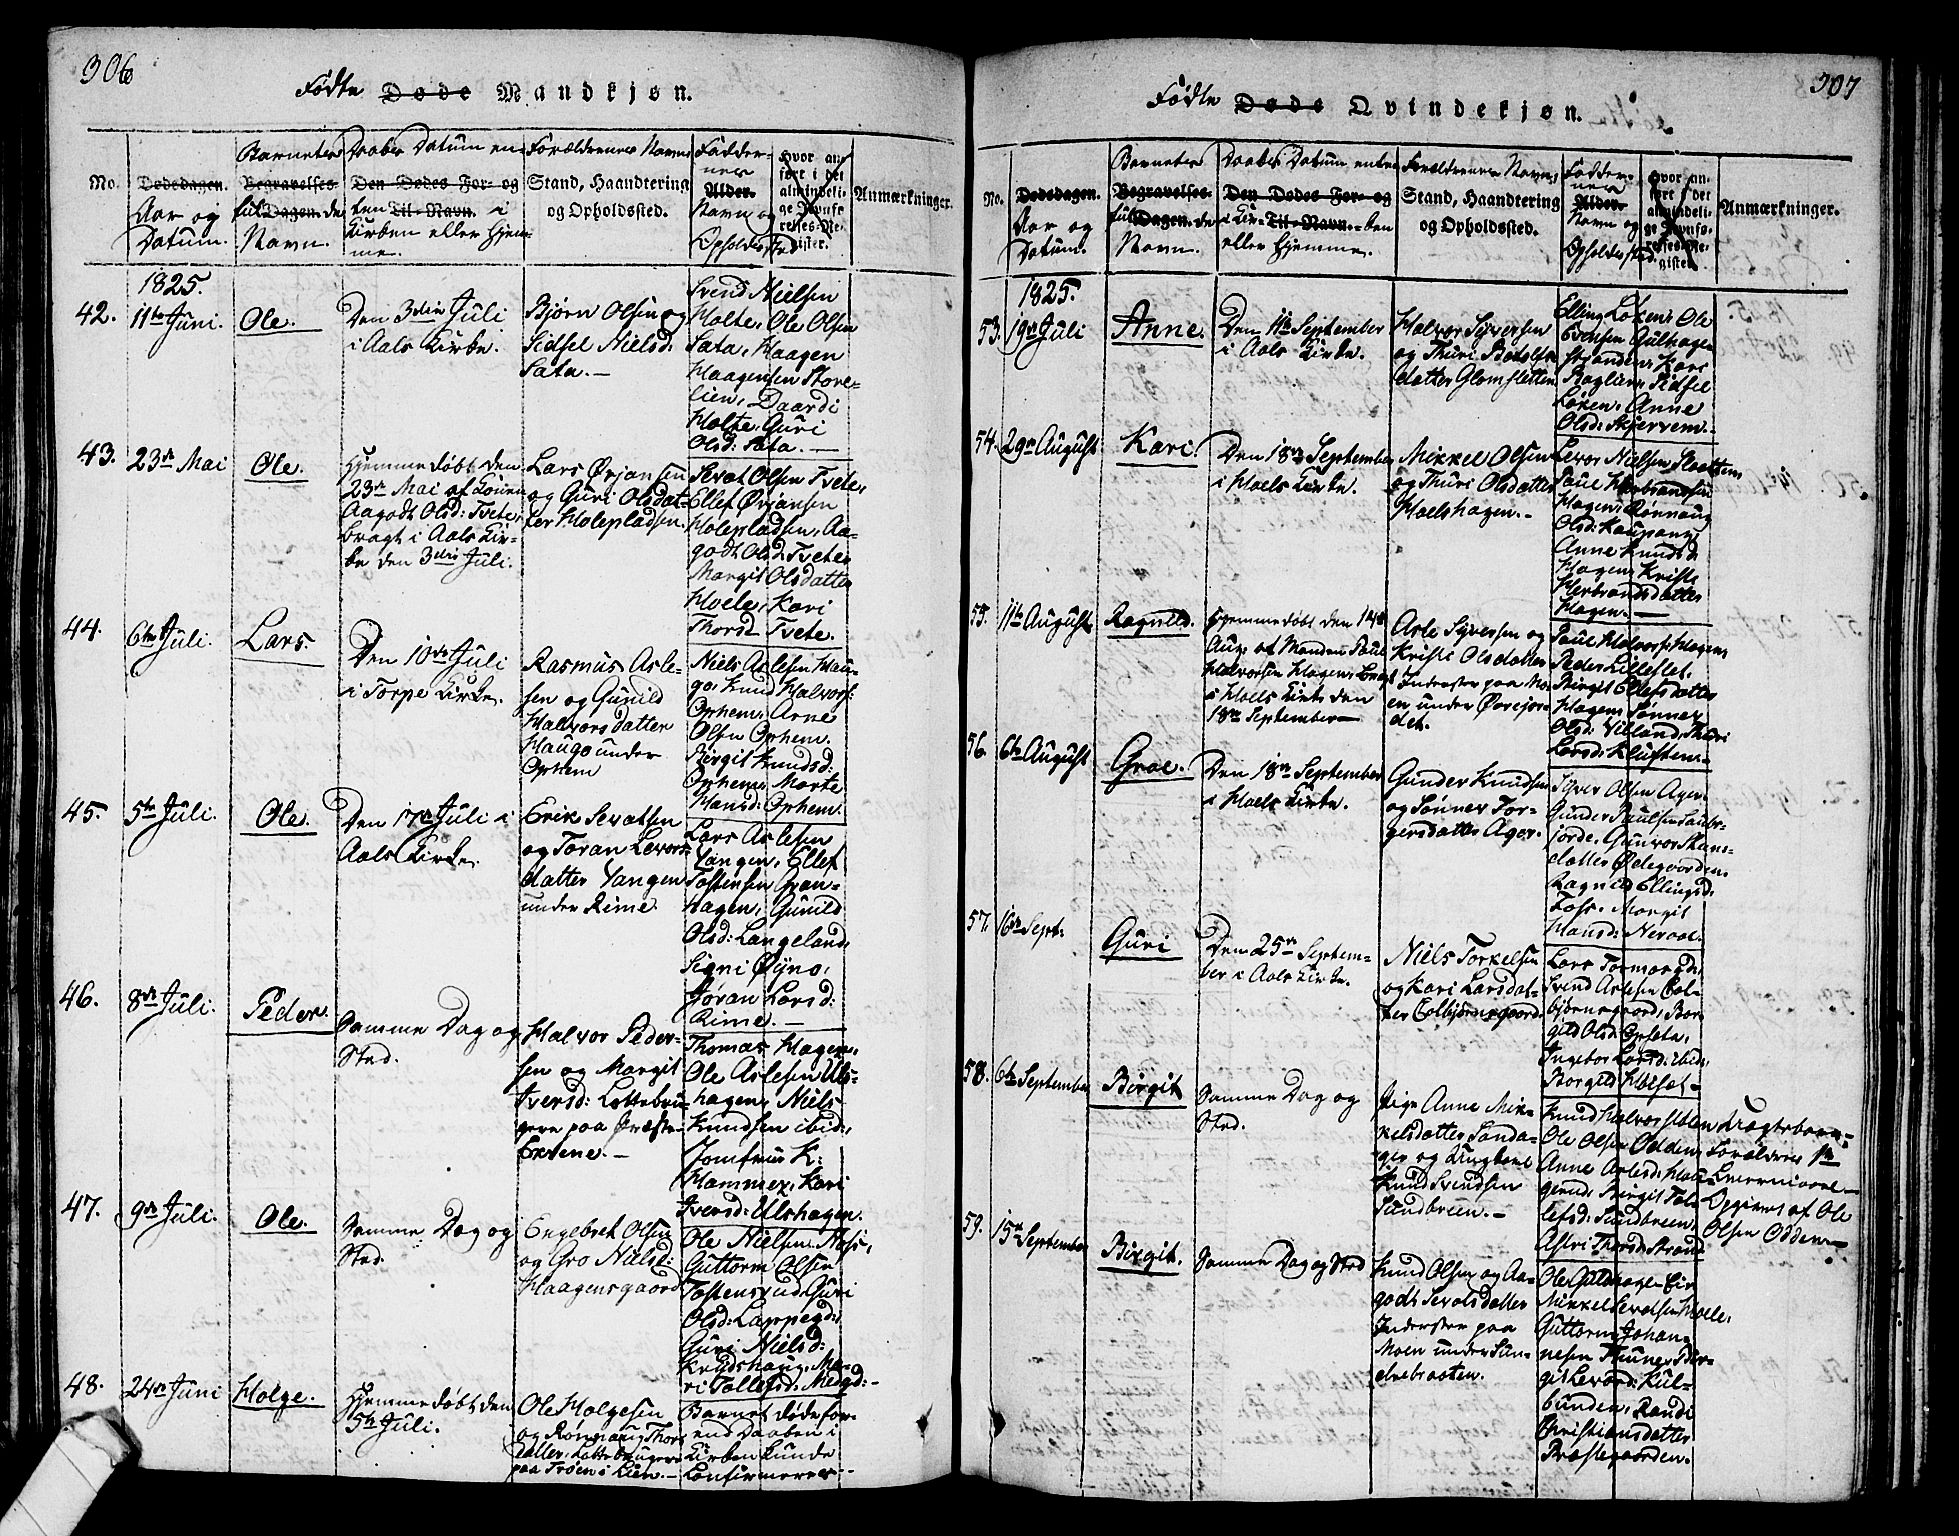 306
Fødte Døde Mandkjøn.
No.
Dødsdagen.
Aar og
Datum.
Barnets
Begravelses-
Dagen.
Navn.
Daabs Datum en-
Den Dødes For- og
ten Til-Navn. i
Kirken eller Hjem-
me.
Forældrenes Navn
Stand, Haandtering
og Opholdssted.
Fadder-
nes
Alder.
Navn og
Opholdssted
Hvor an-
ført i det
almindeli-
ge Jevnfø-
relses-Re-
gister.
Anmærkninger.
1825.
42.
11te Juni.
Ole.
Den 3die Juli
i Aals Kirke.
Bjørn Olsen og
Sidsel Nielsd:
Sata. —
Svend Nielsen
Holte, Ole Olsen
Sata, Haagen
Haagensen Store-
lien, Daardi
Holte, Guri
Olsd: Sata. —
43.
23de Mai
Ole.
Hjemmedøbt den
23de Mai af Konen
Aagodt Olsd: Tvete,
bragt i Aals Kir-
ke den 3die Juli.
Lars Ørjansen
og Guri Olsdat-
ter Holepladsen.
Sevat Olsen Tvete,
Ellef Ørjansen
Holepladsen, Aa-
godt Olsd Tvete
Margit Olsdatter
Hoele, Kari
Thorsd Tvete.
44.
6te Juli.
Lars.
Den 10de Juli
i Torpe Kirke.
Rasmus Asle-
sen og Gunild
Halvorsdatter
Haugo under
Ophem
Niels Aslesen Hau-
go, Knud Halvors:
Ophem, Arne
Olsen Ophem.
Birgit Knudsd:
Ophem, Marte
Hansd: Ophem.
45.
5te Juli.
Ole.
Den 17de Juli i
Aals Kirke.
Erik Sevatsen
og Jøran Levors-
datter Vangen
under Rime.
Lars Aslesen
Vangen, Ellef
Tostensen Gran-
hagen, Gunild
Olsd: Langeland,
Signi Øyno,
Jøran Larsd:
Rime. —
46.
8de Juli.
Peder.
Samme Dag og
Sted.
Halvor Peder-
sen og Margit
Iversd: Lottebru-
gere paa Præste-
Eiene. —
Thomas Hagen,
Ole Aslesen Uls-
hagen, Niels
Knudsen ibid:,
Jomfrue K:
Hammer, Kari
Iversd: Ulshagen.
47.
9de Juli.
Ole.
Samme Dag og
Sted.
Engebret Olsen
og Gro Nielsd:
Haagensgaard
Ole Nielsen Næss,
Guttorm Olsen
Tostensrud, Guri
Olsd: Lappegd:
Guri Nielsd:
Knudshaug, Ma-
ri Tollefsd: Megd: —
48.
24de Juni
Holge.
Hjemmedøbt den
5te Juli.
Ole Holgesen
og Rønnaug Thors-
datter, Lottebrugere
paa Trøen i Lien. —
Barnet døde for-
end Daaben i
Kirken kunde
Confirmeres. —
307
Fødte Døde Qvindekjøn.
No.
Dødsdagen.
Aar og
Datum.
Barnets
Begravelses-
Dagen.
Navn.
Daabs Datum enten
Den Dødes For- og
i Kir- Til-Navn. ken
eller Hjemme.
Forældrenes Navn,
Stand, Haandtering
og Opholdssted.
Fadder-
nes
Alder.
Navn og
Opholdssted.
Hvor an-
ført i det
almindeli-
ge Jevnfø-
relses-Re-
gister.
Anmærkninger.
1825.
53.
19de Juli
Anne.
Den 11te September
i Aals Kirke.
Halvor Syversen
og Thuri Botolfs-
datter Glomsletten
Elling Løken, Ole
Evensen Gulhagen
Stranden, Kari
Roglien, Sidsel
Løken, Anne
Olsd: Skjervem.
54.
29de August
Kari.
Den 18de September
i Hoels Kirke.
Mikkel Olsen
og Thuri Olsdatter
Hoelshagen. —
Levor Nielsen
Paul Herbrandsen
Hagen, Rønnaug
Olsd: Kaupang,
Anne Knudsd
Hagen, Kristi
Herbrandsdatter
Hagen. —
55.
11te August
Ragnild.
Hjemmedøbt den 14de
Aug. af Manden Paul
Halvorsen Hagen, bragt
i Hoels Kirke den
18de September —
Asle Syversen og
Kristi Olsdatter
Inderster paa Mo-
en under Øvrejor-
det.
Paul Halvors: Hagen,
Peder Lilleslet.
Birgit Ellefsdatter
Hagen, Sønnev
Olsd: Villand, Thuri
Larsd: Kluften. —
56.
6te August
Groe.
Den 18de September
i Hoels Kirke.
Gunder Knudsen
og Sønnev Tor-
gersdatter Ager.
Syver Olsen Ager.
Gunder Paulsen
jorde, Gunvor
datter Ødegaarden.
Ragnild Ellingsd:
Foss, Margit
Hansd: Neraal.
57.
16de Sept:
Guri
Den 25de Septem-
ber i Aals Kirke.
Niels Torkelsen
og Kari Larsdat-
ter Colbjørnsgaard.
Lars Tormogd:
Svend Aslesen Col-
bjørnsgaard, Bor-
gild Olsd: Opsata,
Ingebor Larsd: ibid:
Borgild Holset —
58.
6te September
Birgit
Samme Dag og
Sted.
Pige Anne Mik-
kelsdatter Sanda-
ger og Ungkarl
Knud Svendsen
Sundbreen. —
Knud Halvorsen
Ole Olsen Odden
Anne Aslesd:
gerud, Birgit Tol-
lefsd: Sundbreen,
Astri Thorsd: Strand
Uægtebarn:
Forældrenes 1te
Leiermaal —
Opgivet af Ole
Olsen Odden —
59.
15de September
Birgit.
Samme Dag og Sted
Knud Olsen og Aa-
godt Sevatsdatter
Inderster paa
Moen under Sun-
drebraaten.
Ole Guldhagen
Mikkel Sevatsen
Guttorm Johan-
nesen Thune, Bir-
git Levord: Kul-
bunden, Randi
Christiansdatter
Præstegaarden.